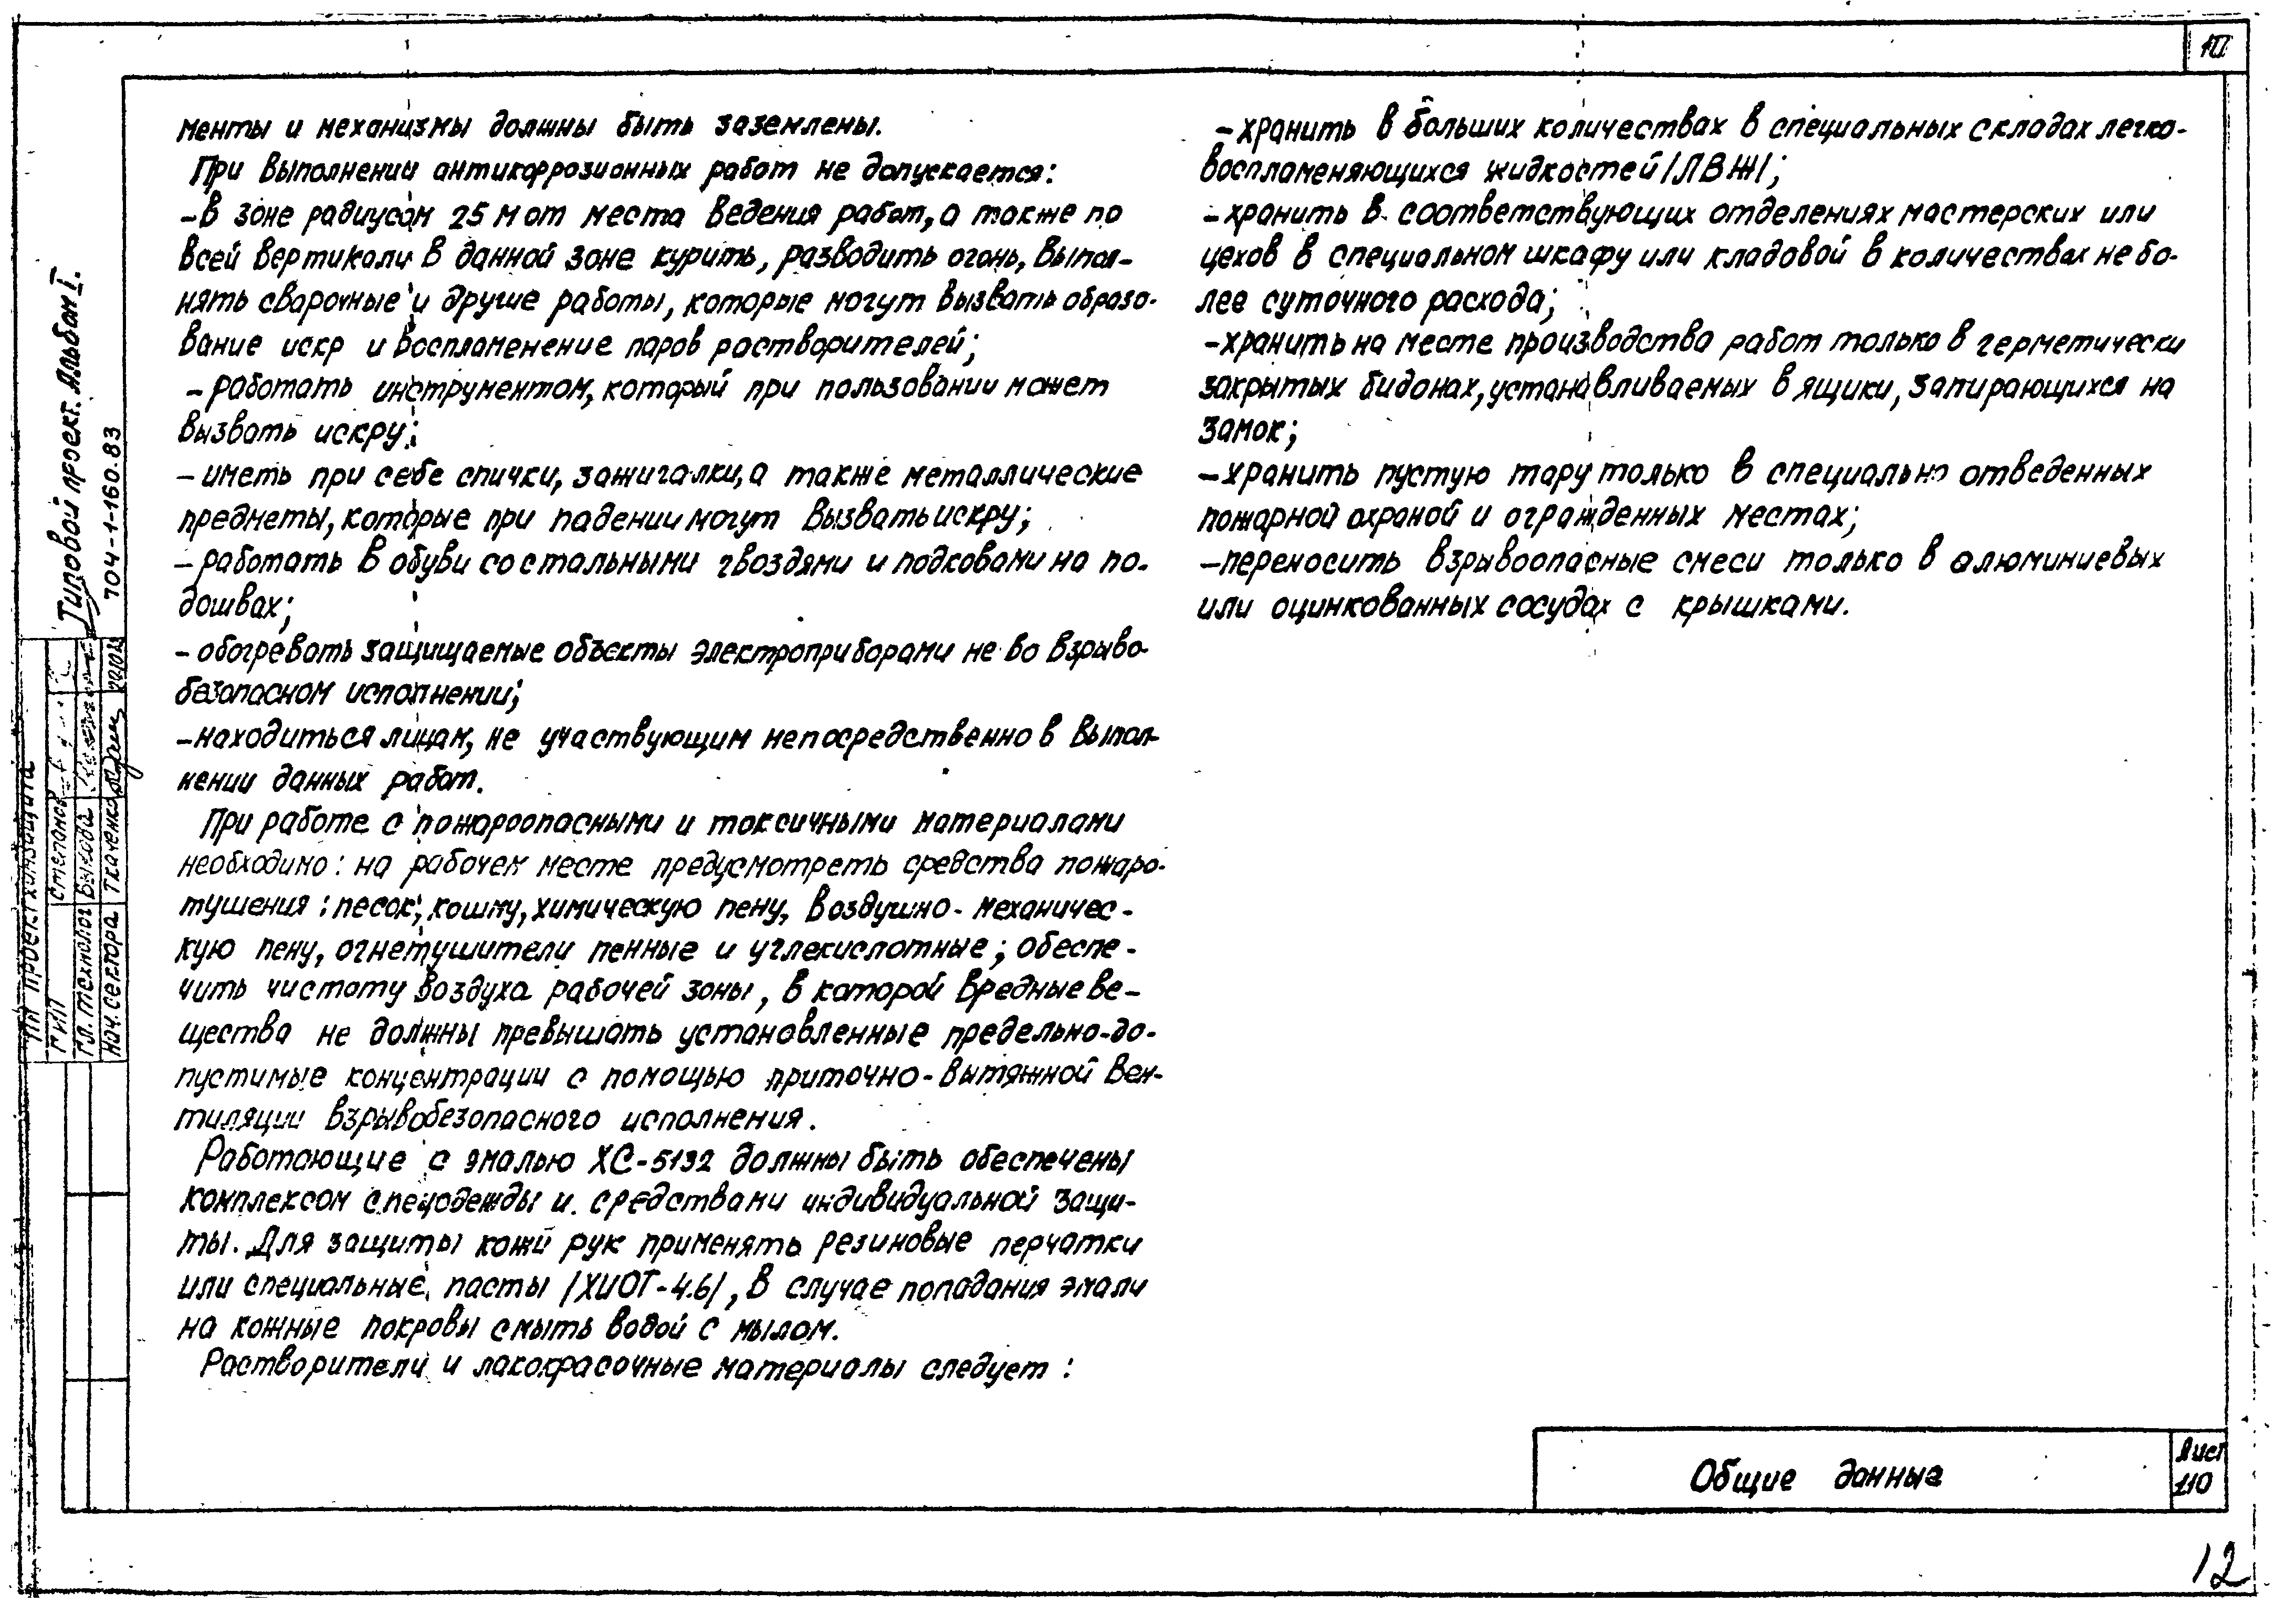 менты и механизмы должны быть заземлены.
При выполнении антикоррозионных работ не допускается:
-в зоне радиусом 25 м от места ведения работ, а также по
всей вертикали в данной зоне курить, разводить огонь, выпол-
нять сварочные и другие работы, которые могут вызвать образо-
вание искр и воспламенение паров растворителей;
- работать инструментом, который при пользовании может
вызвать искру;
- иметь при себе спички, зажигалки, а также металлические
предметы, которые при падении могут вызвать искру;
- работать в обуви со стальными гвоздями и подковами на по-
дошвах;
- обогревать защищаемые объекты электроприборами не во взрыво-
безопасном исполнении;
- находиться лицам, не участвующим непосредственно в выпол-
нении данных работ.
При работе с пожароопасными и токсичными материалами
необходимо: на рабочем месте предусмотреть средства пожаро-
тушения: песок, кошму, химическую пену, воздушно-механичес-
кую пену, огнетушители пенные и углекислотные; обеспе-
чить чистоту воздуха рабочей зоны, в которой вредные ве-
щества не должны превышать установленные предельно-до-
пустимые концентрации с помощью приточно-вытяжной вен-
тиляции взрывобезопасного исполнения.
Работающие с эмалью ХС-5132 должны быть обеспечены
комплексом спецодежды и средствами индивидуальной защи-
ты. Для защиты кожи рук применять резиновые перчатки
или специальные пасты /ХИОТ-4.6/, в случае попадания эмали
на кожные покровы смыть водой с мылом.
Растворители и лакокрасочные материалы следует:
- хранить в больших количествах в специальных складах легко-
воспламеняющихся жидкостей /ЛВЖ/;
- хранить в соответствующих отделениях мастерских или
цехов в специальном шкафу или кладовой в количествах не бо-
лее суточного расхода;
- хранить на месте производства работ только в герметически
закрытых бидонах, устанавливаемых в ящики, запирающихся на
замок;
- хранить пустую тару только в специально отведенных
пожарной охраной и огражденных местах;
- переносить взрывоопасные смеси только в алюминиевых
или оцинкованных сосудах с крышками.
Типовой проект. Альбом I.
704-1-160.83
ПИ Проектхимзащита
ГИП Степанов
Гл. технолог Быкова
Нач. сектора Ткаченко
Общие данные
Лист
12